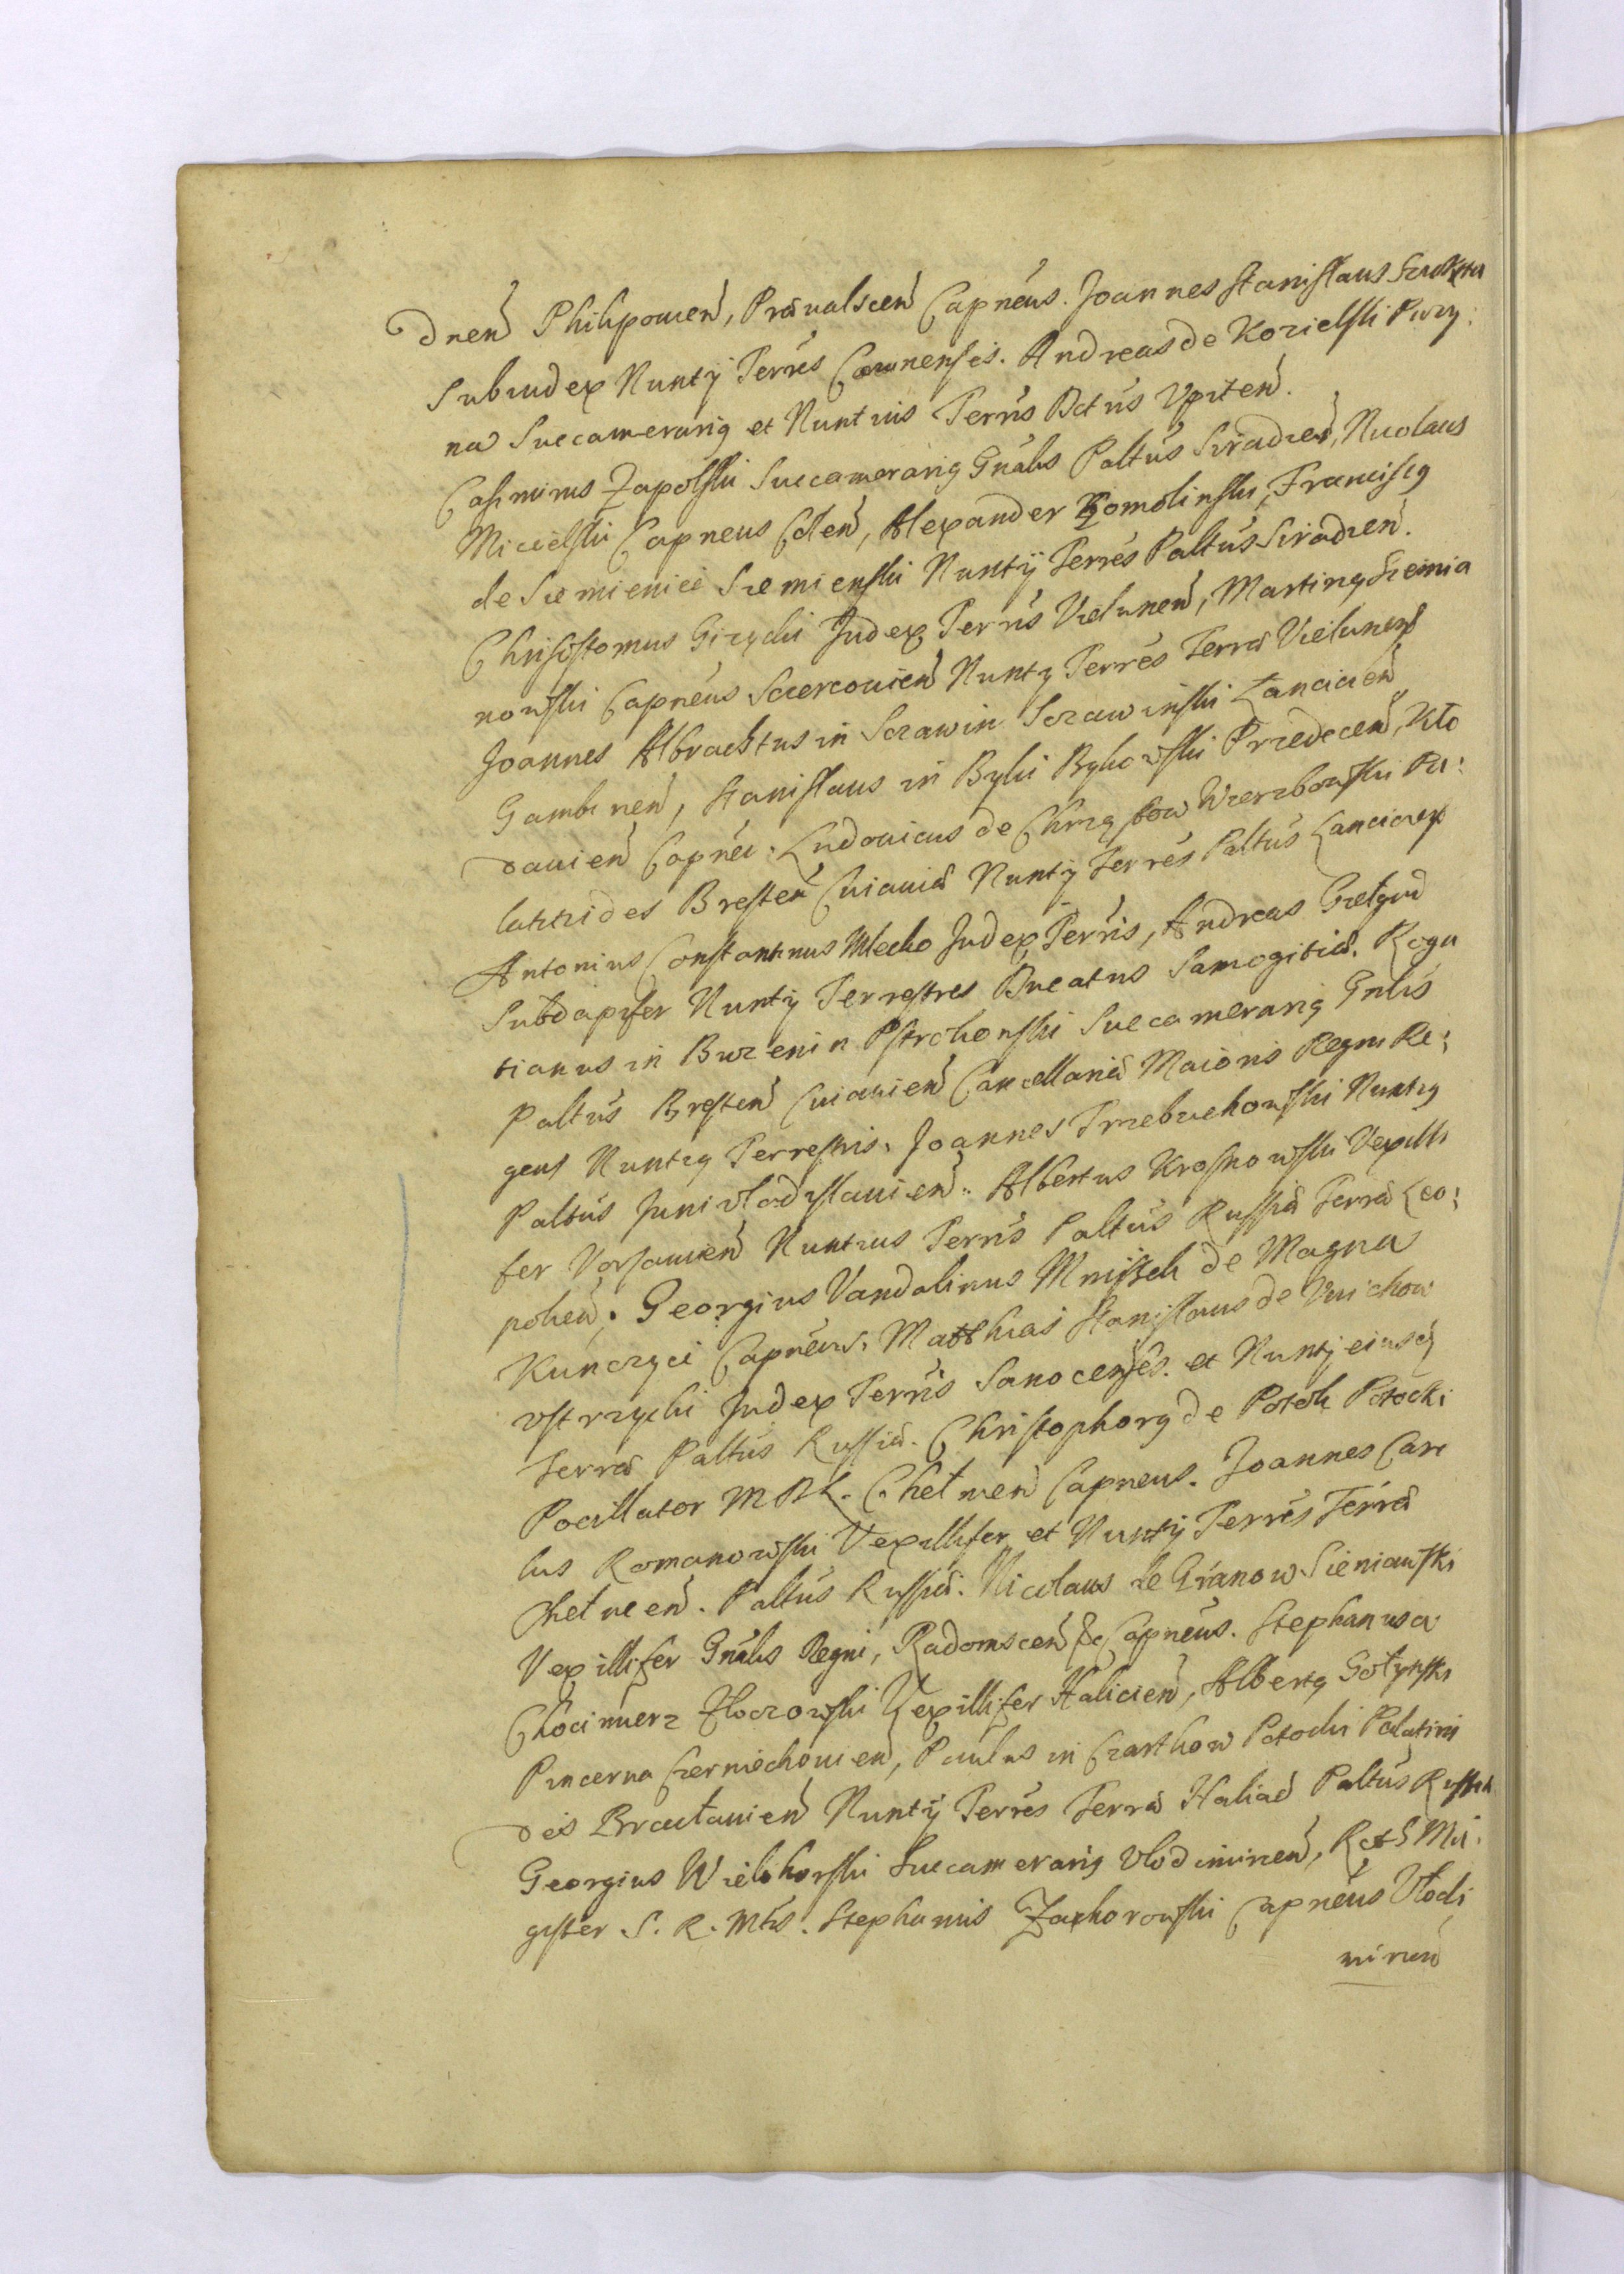 dnen Philipowien, Pravalscen Capneus. Joannes Stanislaus Szukszta
Subiudex Nuntÿ Terrēs Caunenses. Andreas de Kozielski Puzy:
na Succamerarig et Nuntius Terrīs Dctūs Upiten.
Casimirus Zapolski Succamerarig Gnālis Paltūs Siradien, Nicolaus
Micielski Capneus Colen, Alexander Komolinski, Franciscg
de Siemienice Siemienski Nuntÿ Terrēs Paltūs Siradien.
Chrisostomus Gizycki Judex Terrīs Vielunen, Marting Siemia
nowski Capnēus Szercovien Nuntÿ Terrēs Terræ Vielunens
Joannes Albrachtus in Szrawin Szczawinski Lancicien
Gambinen, Stanislaus in Byki Bykowski Przedecen, Kło
davien Capnēi. Ludovicus de Chrzgstow Wierzbowski Pa:
latzides Bresten Cuiaviæ Nuntÿ Terrēs Paltūs Lancicien
Antonius Constantinus Mlecko Judex Terrīs, Andreas Giełgud
Subdapifer Nuntÿ Terrestres Ducatus Samogitiæ. Roga
tianus in Buzenin Pstrokonski Succamerarig Gnlis
Paltūs Bresten Cuiavien Cancellariæ Maioris Regni Re:
gens Nuntig Terrestris. Joannes Trzebuchowski Nuntig
Paltūs Junivladislavien. Albertus Krosnowski Vexilli
fer Varsavien Nuntius Terrīs Paltūs Russiæ Terræ Leo:
polien. Georgius Vandalinus Mniszek de Magna
Kunczyce Capnēus. Matthias Stanislaus de Unichow
Ustrzycki Judex Terrīs Sanocenses. et Nuntÿ eiusdg
Terræ Paltūs Russiæ. Christophorg de Potok Potocki
Pocillator MDL. Chełmen Capneus. Joannes Caro
lus Romanowski Vexillifer et Nuntÿ Terrēs Terræ
Chełmen. Paltūs Russiæ. Nicolaus de Granow Sieniawski
Vexillifer Gnālis Regni, Radomscen &c Capnēus. Stephanus a
Chocimierz Hoczowski Vexillifer Halicien, Albertg Gołynski
Pincerna Czerniechovien, Paulus in Czarthow Potocki Palatini
des Bracłavien Nuntÿ Terrēs Terræ Haliciæ Paltūs Russiæ
Georgius Wielohorski Succamerarig Vlodimirien, R et S Ma:
gister S. R. Mtis. Stephanus Zahorowski Capnēus Vłodi
mirien